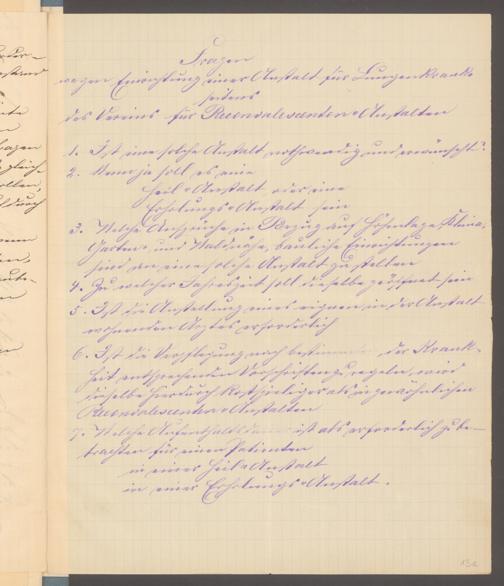 Fragen
wegen Einrichtung einer Anstalt für Lungenkranke
seitens
des Vereins für Reconvalescenten-Anstalten
1. Ist eine solche Anstalt nothwendig und erwünscht?
2. Wenn ja soll es eine
Heil-Anstalt oder eine
Erholungs-Anstalt sein
3. Welche Ansprüche in Bezug auf Höhenlage, Klima,
Garten-, und Waldnähe, bauliche Einrichtungen
sind an eine solche Anstalt zu stellen
4. Zu welcher Jahreszeit soll dieselbe geöffnet sein
5. Ist die Anstellung eines eignen, in der Anstalt
wohnenden Arztes erforderlich
6. Ist die Verpflegung nach bestimmten der Krank-
heit entsprechenden Vorschriften zu regeln, wird
dieselbe hierdurch kostspieliger als in gewöhnlichen
Reconvalescenten-Anstalten
7. Welche Aufenthaltsdauer ist als erforderlich zu be-
trachten für einen Patienten
in einer Heil-Anstalt
in einer Erholungs-Anstalt.